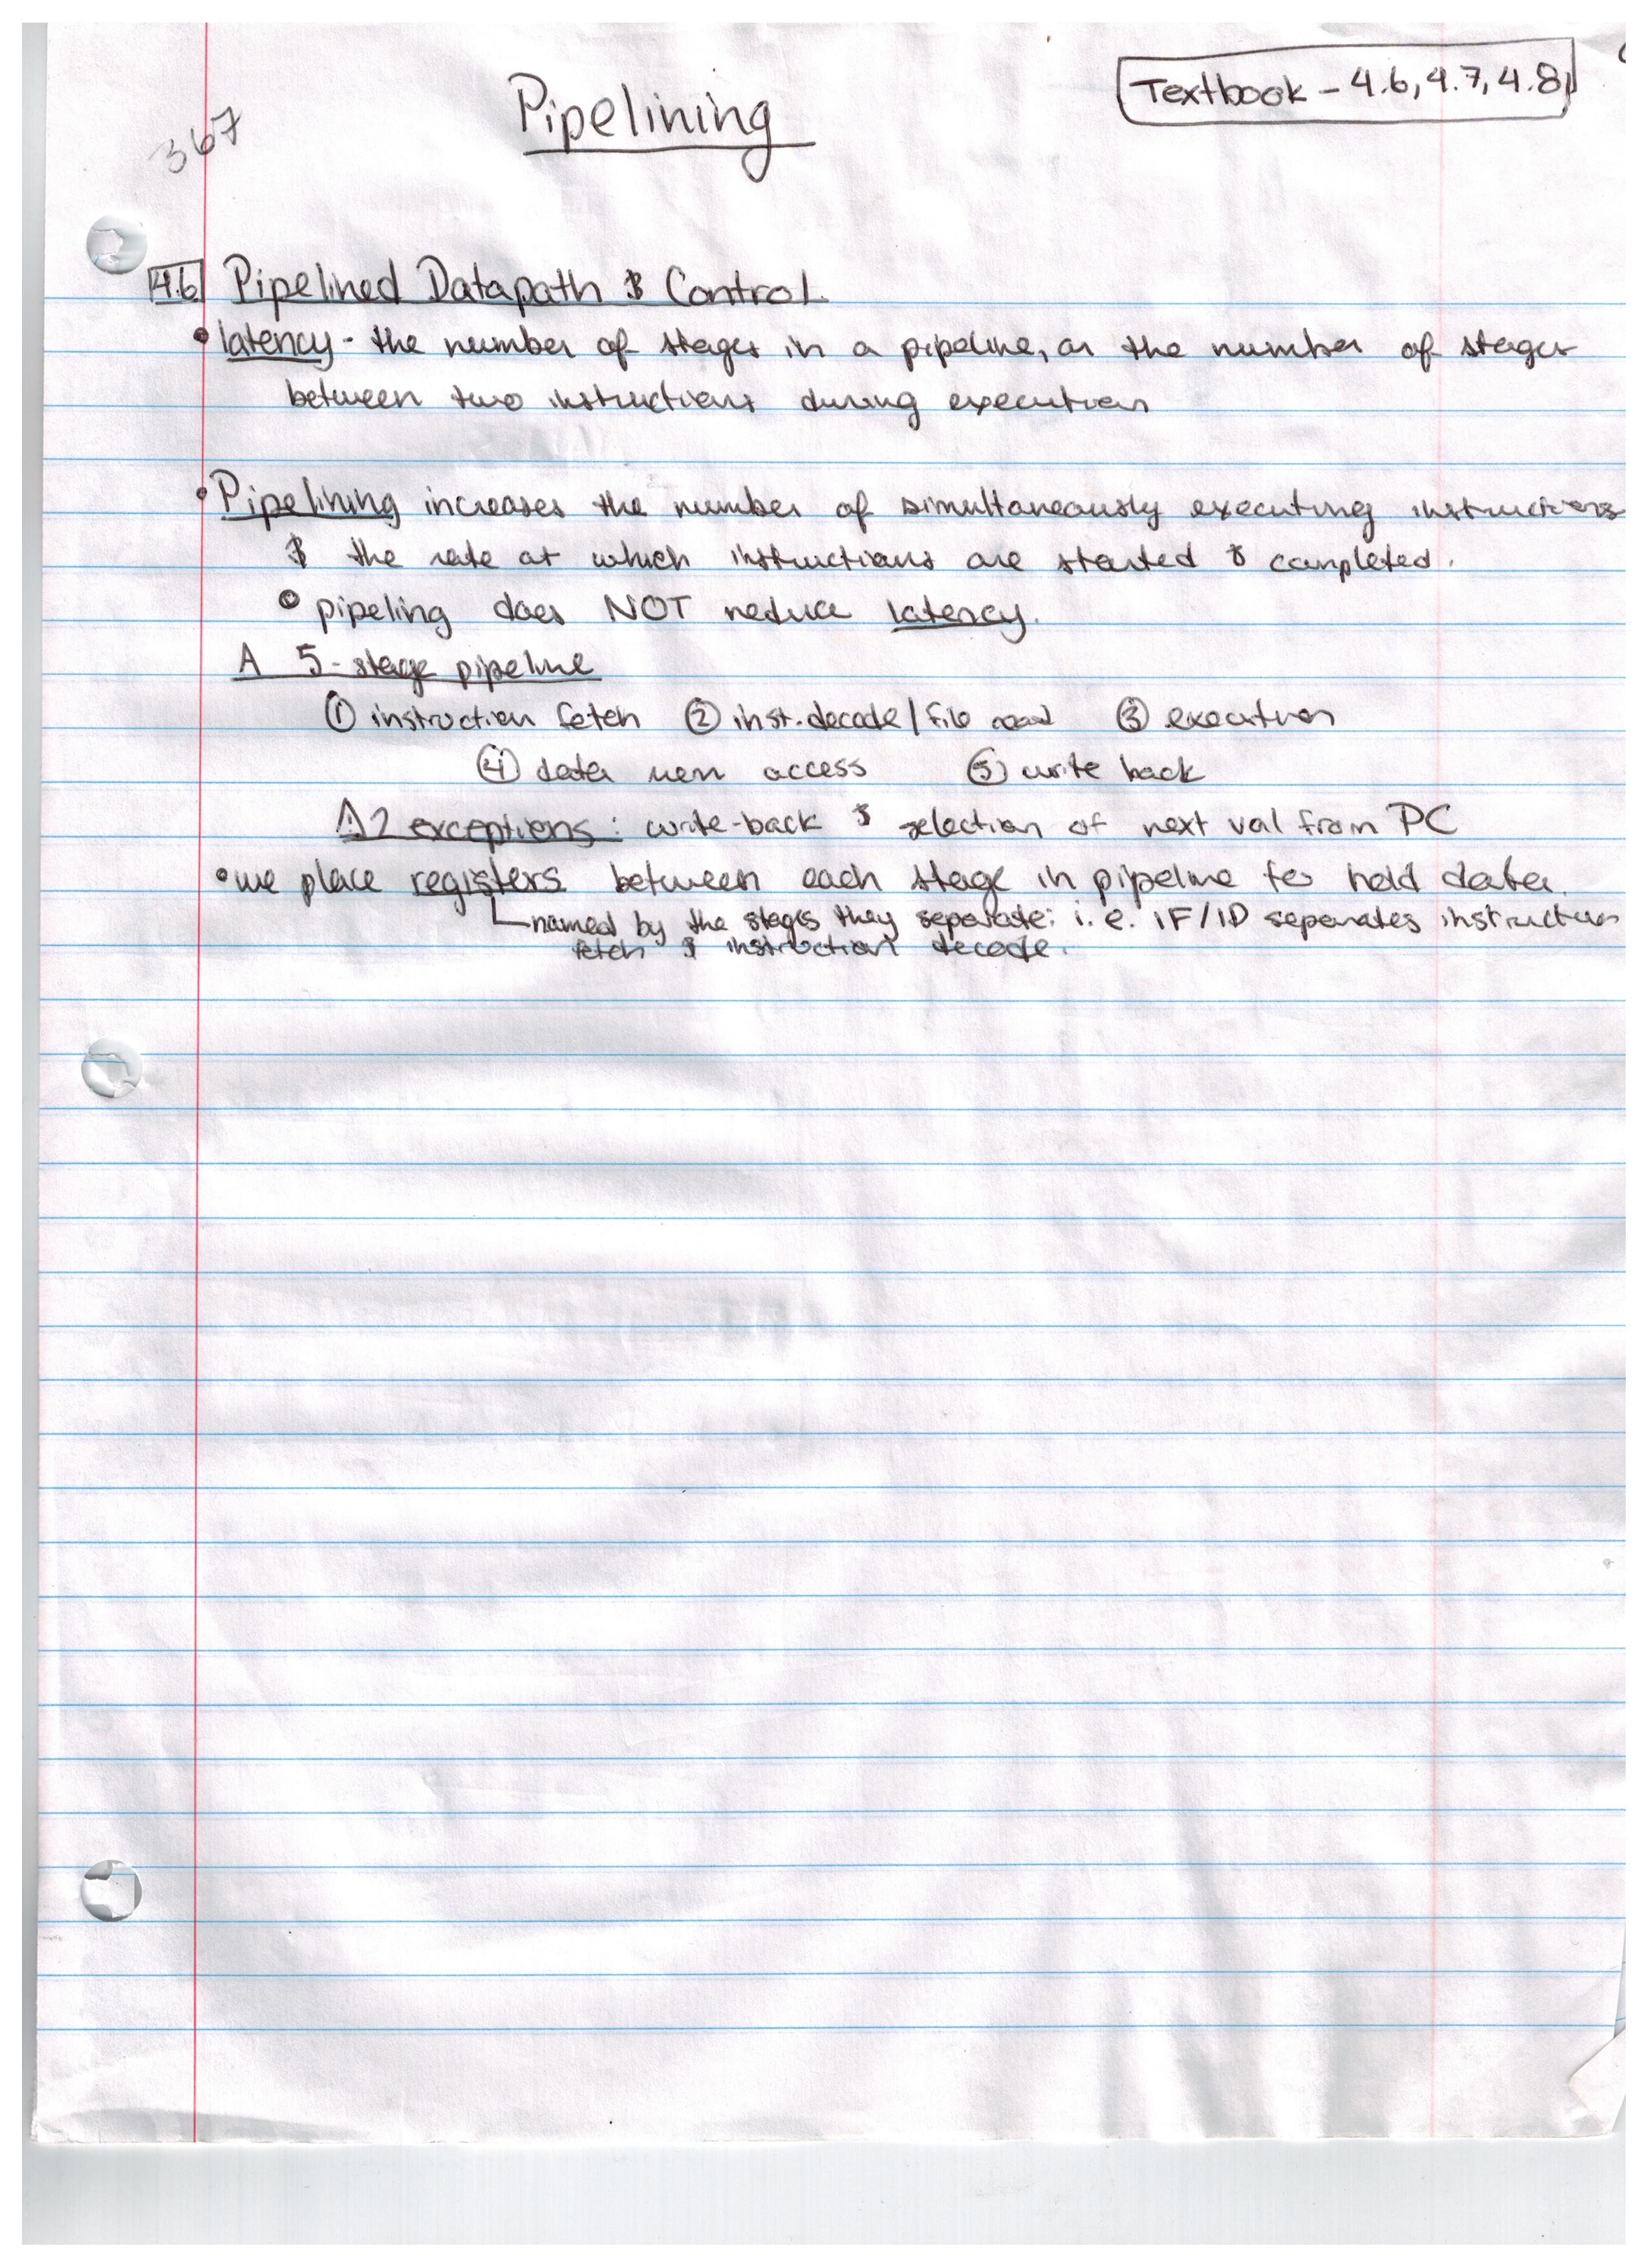 Textbook - 4.6, 4.7, 4.8
Pipelining
367
4.6 Pipelined Datapath & Control
• latency - the number of stages in a pipeline, or the number of stages
between two instructions during execution
• Pipelining increases the number of simultaneously executing instructions
& the rate at which instructions are started & completed.
• pipeling does NOT reduce latency.
A 5-stage pipeline
① instruction fetch ② inst. decode / file read ③ execution
④ data mem access ⑤ write back
⚠ 2 exceptions: write-back & selection of next val from PC
• we place registers between each stage in pipeline to hold data.
named by the stages they separate: i.e. IF/ID separates instruction
fetch & instruction decode.